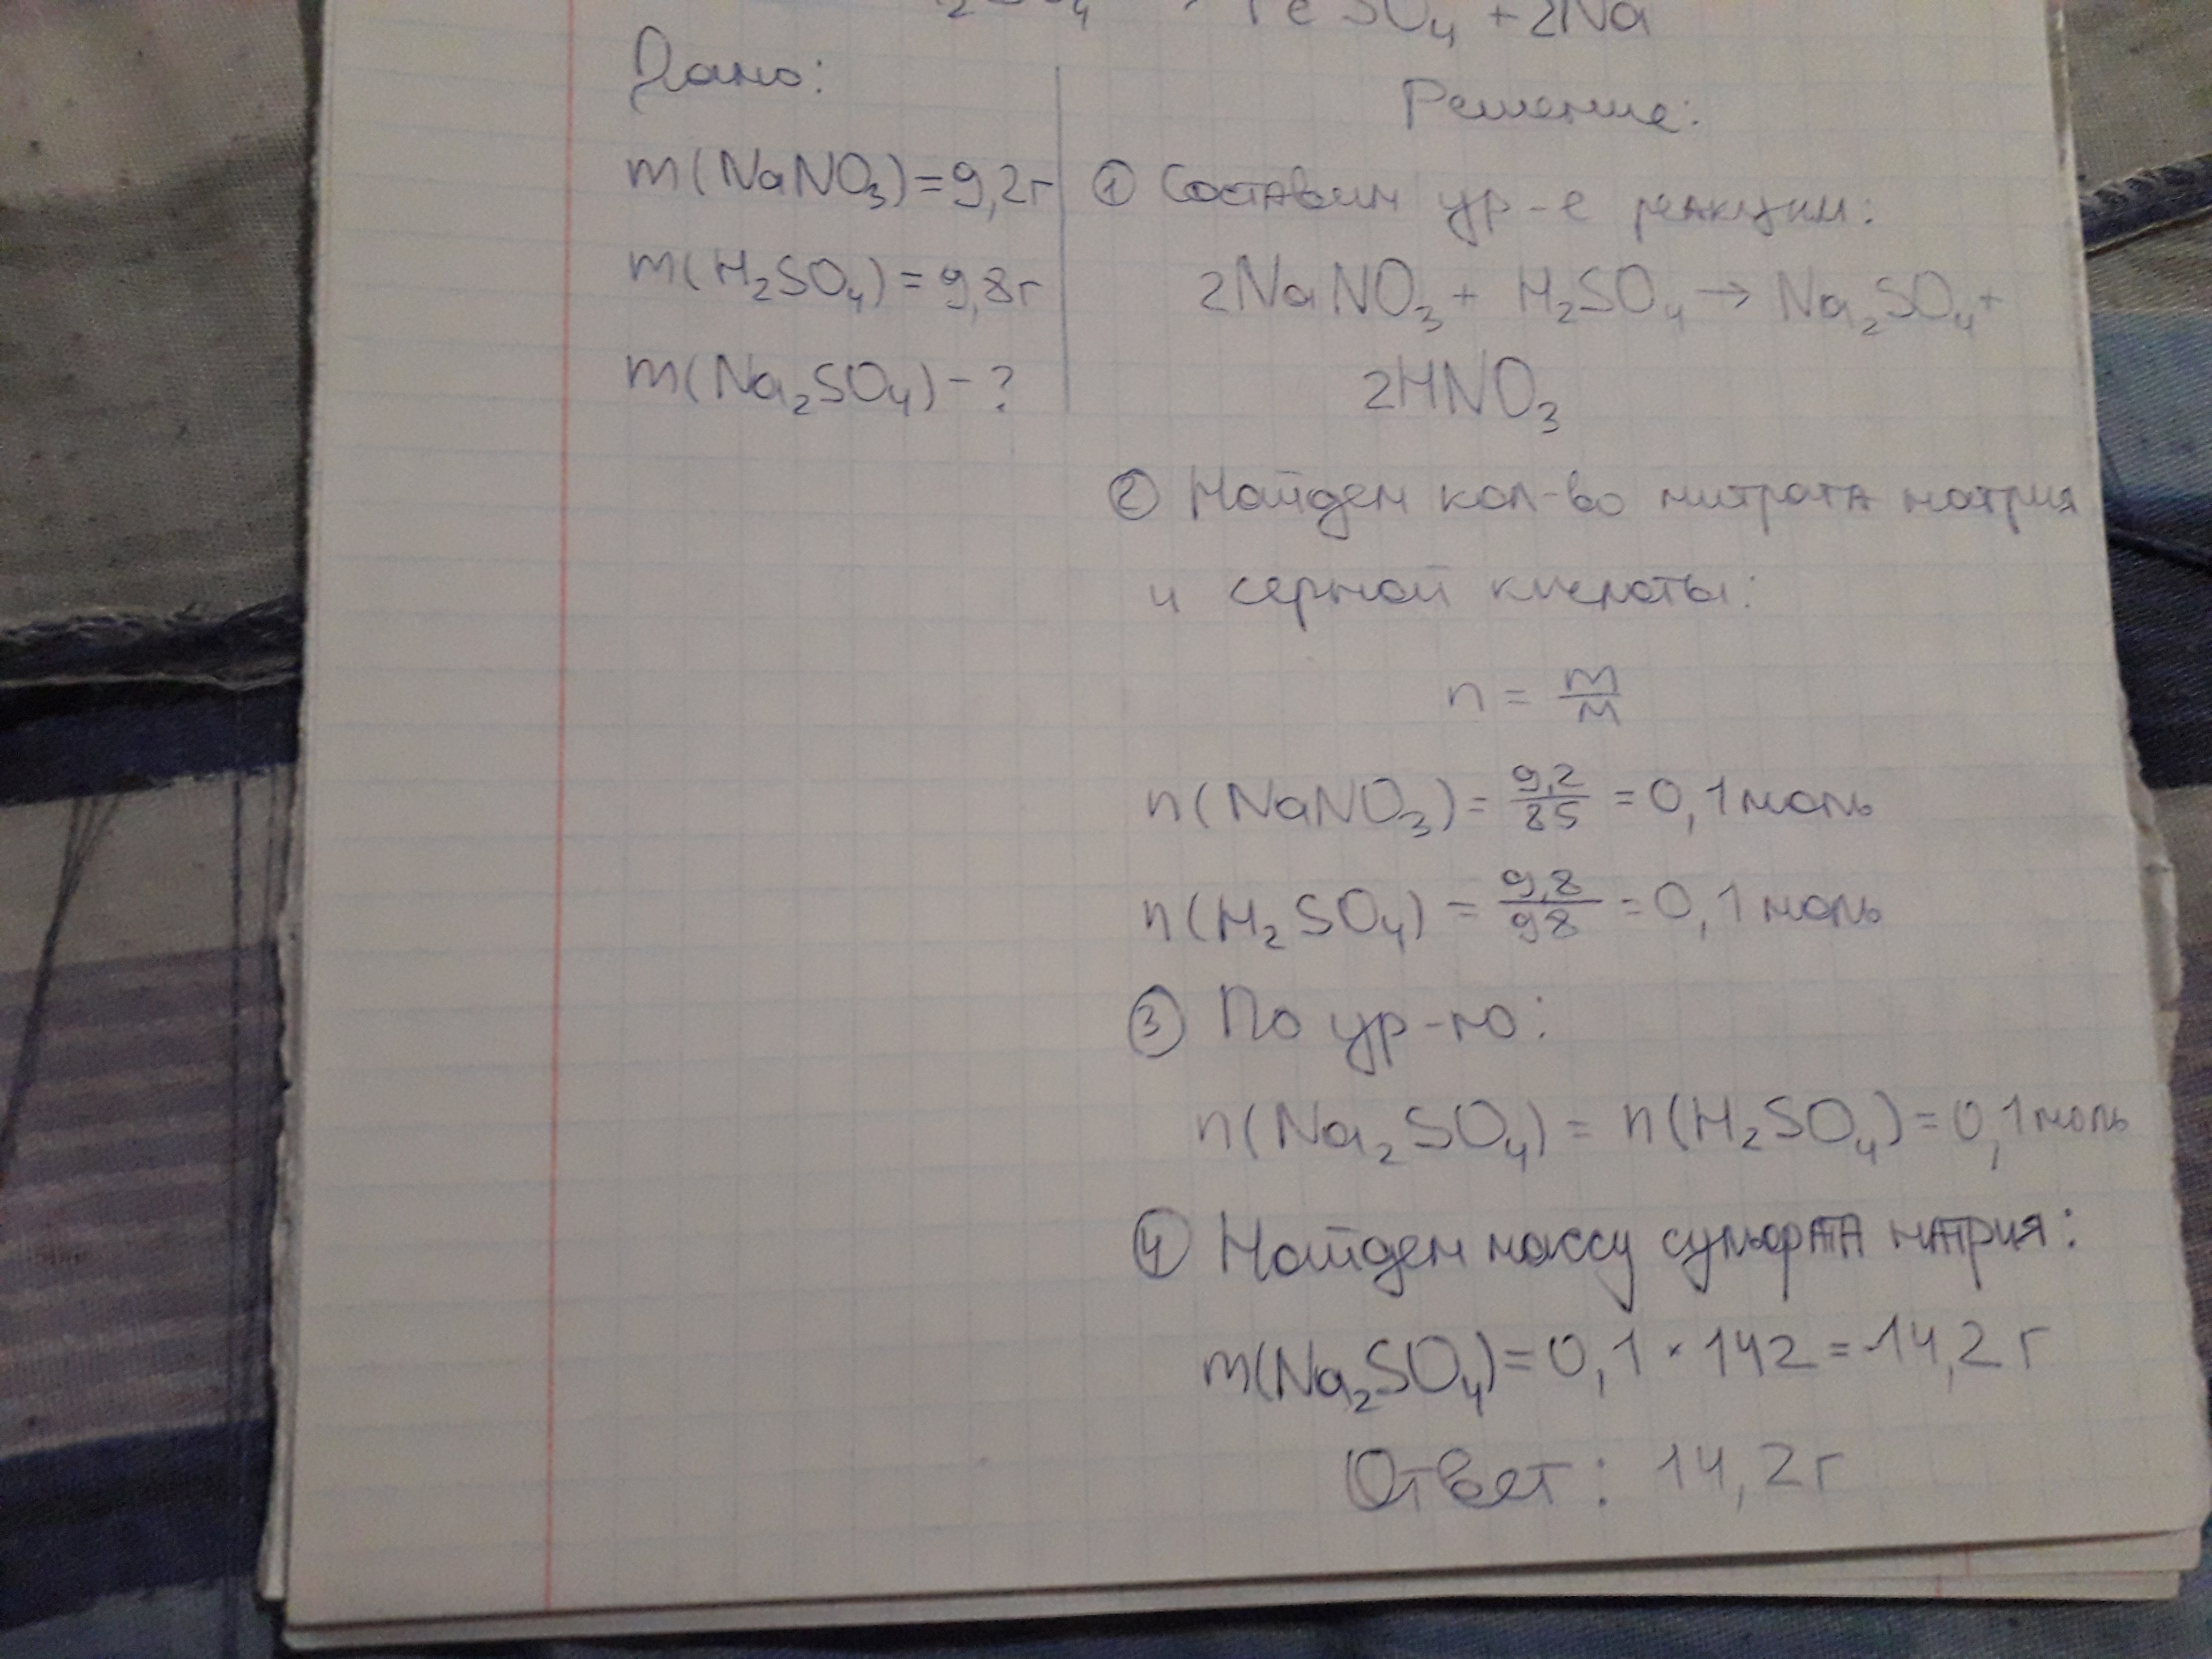 FeSO₄ + 2Na
Дано:
m(NaNO₃) = 9,2г
m(H₂SO₄) = 9,8г
m(Na₂SO₄) - ?
Решение:
① Составим ур-е реакции:
2NaNO₃ + H₂SO₄ → Na₂SO₄ +
2HNO₃
② Найдем кол-во нитрата натрия
и серной кислоты:
n = m/M
n(NaNO₃) = 9,2/85 = 0,1 моль
n(H₂SO₄) = 9,8/98 = 0,1 моль
③ По ур-ю:
n(Na₂SO₄) = n(H₂SO₄) = 0,1 моль
④ Найдем массу сульфата натрия:
m(Na₂SO₄) = 0,1 · 142 = 14,2 г
Ответ: 14,2г